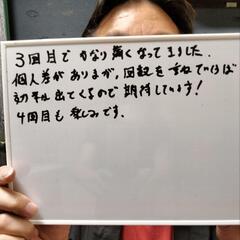 3回目で かなり 薄くなってきました.
個人差がありますが, 回数を重ねていけば
効果出てくるので 期待しています!
4回目も 楽しみです.